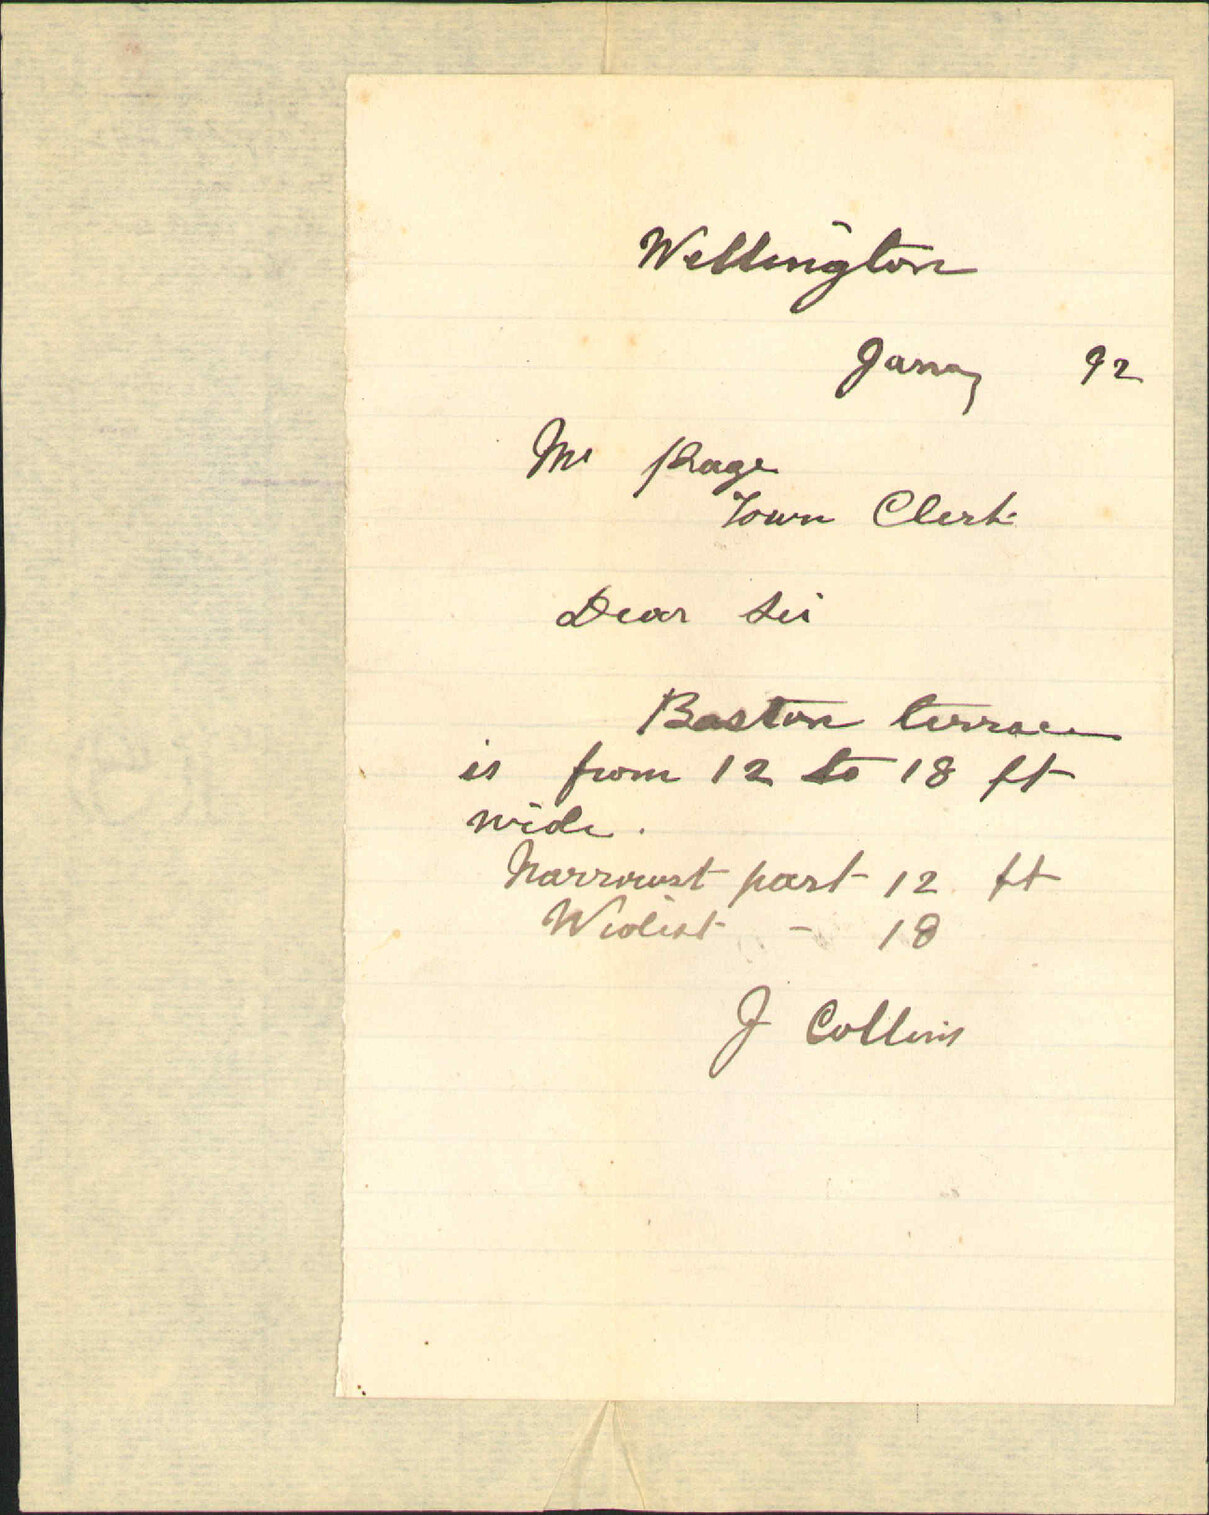 Wellington
Janry 92
Mr Page
Town Clerk
Dear Sir
Baston terrace
is from 12 to 18 ft
wide.
Narrowest part 12 ft
Widest - 18
J Collins